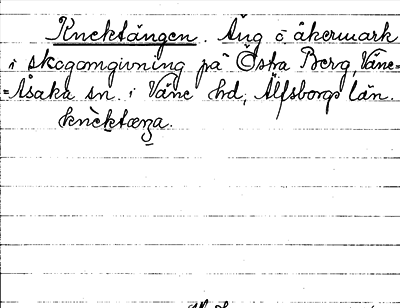 Knektängen. Äng o åkermark
i skogomgivning på Östra Berg, Väne-
=Åsaka sn. i Väne hd, Älfsborgs län.
knèktæŋa.